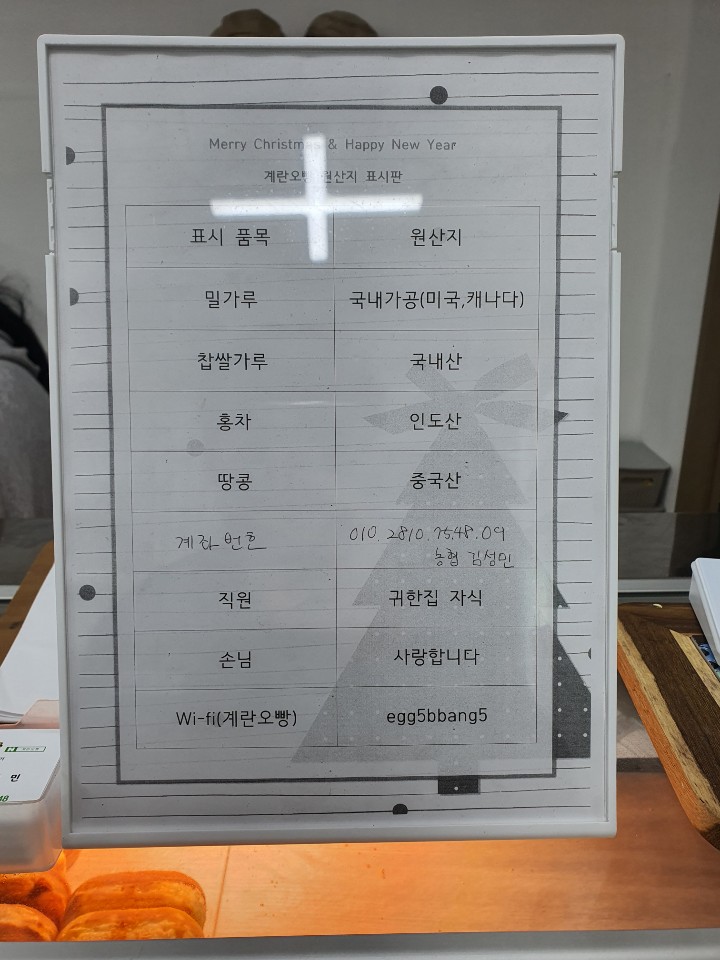 Merry Christmas & Happy New Year
계란오빵 원산지 표시판
표시 품목 원산지
밀가루 국내가공(미국,캐나다)
찹쌀가루 국내산
홍차 인도산
땅콩 중국산
계좌번호 010.2810.7548.09
농협 김성민
직원 귀한집 자식
손님 사랑합니다
Wi-fi(계란오빵) egg5bbang5
민
48